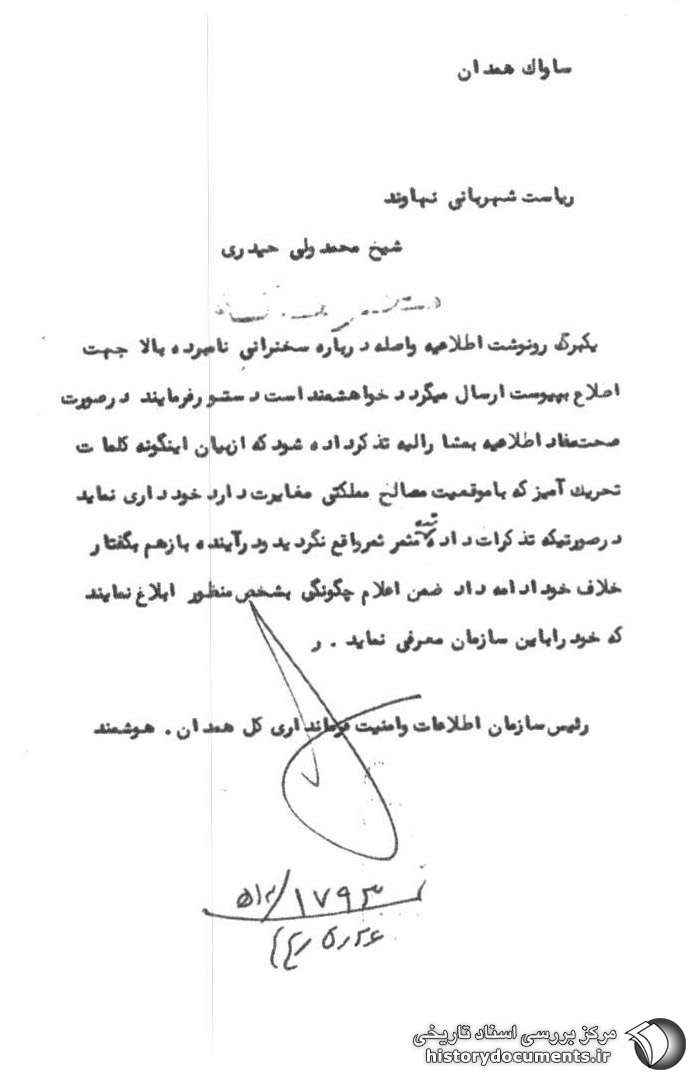 ساواك همدان
ریاست شهربانی نهاوند
شیخ محمد ولی حیدری
یکبرگ رونوشت اطلاعیه واصله درباره سخنرانی نامبرده بالا جهت
اطلاع بپیوست ارسال میگردد خواهشمند است دستور فرمایند درصورت
صحت مفاد اطلاعیه بمشارالیه تذکر داده شود که از بیان اینگونه کلمات
تحریك آمیز که با موقعیت مصالح مملکتی مغایرت دارد خودداری نماید
درصورتیکه تذکرات داده شده مثمر ثمر واقع نگردید ودرآینده بازهم بگفتار
خلاف خود ادامه داد ضمن اعلام چگونگی بشخص منظور ابلاغ نمایند
که خود را باین سازمان معرفی نماید . ر
رئیس سازمان اطلاعات وامنیت فرمانداری کل همدان . هوشمند
۱۷۹۳/۵۱۲
مرکز بررسی اسناد تاریخی
historydocuments.ir